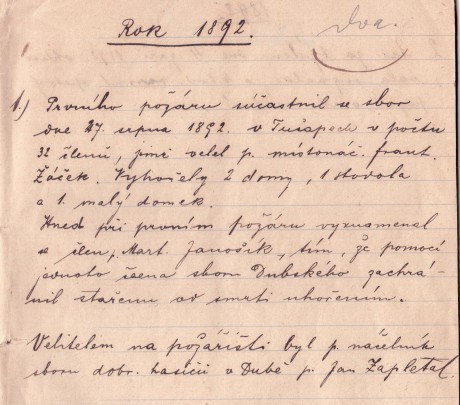 Rok 1892.
dva.
1.) Prvního požáru súčastnil se sbor
dne 27. srpna 1892. v Tušapech v počtu
32 členů, jimž velel p. místonáč. frant.
Žáček. Vyhořely 2 domy, 1 stodola
a 1. malý domek.
Hned při prvním požáru vyznamenal
se člen, Mart. Janošík, tím, že pomocí
jednoto člena sboru Dubského zachrá-
nil stařenu od smrti uhořením.
Velitelem na požářišti byl p. náčelník
sboru dobr. hasičů v Dubě p. Jan Zapletal.